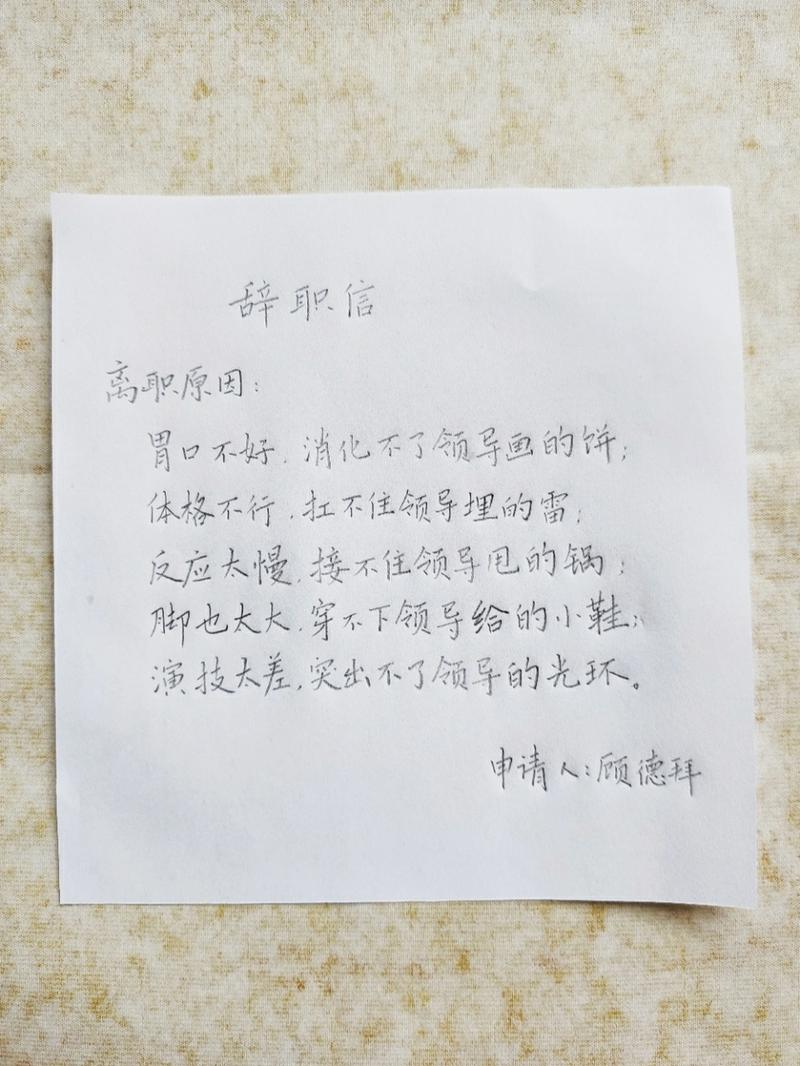 辞职信
离职原因：
胃口不好，消化不了领导画的饼；
体格不行，扛不住领导埋的雷；
反应太慢，接不住领导甩的锅；
脚也太大，穿不下领导给的小鞋；
演技太差，突出不了领导的光环。
申请人：顾德拜